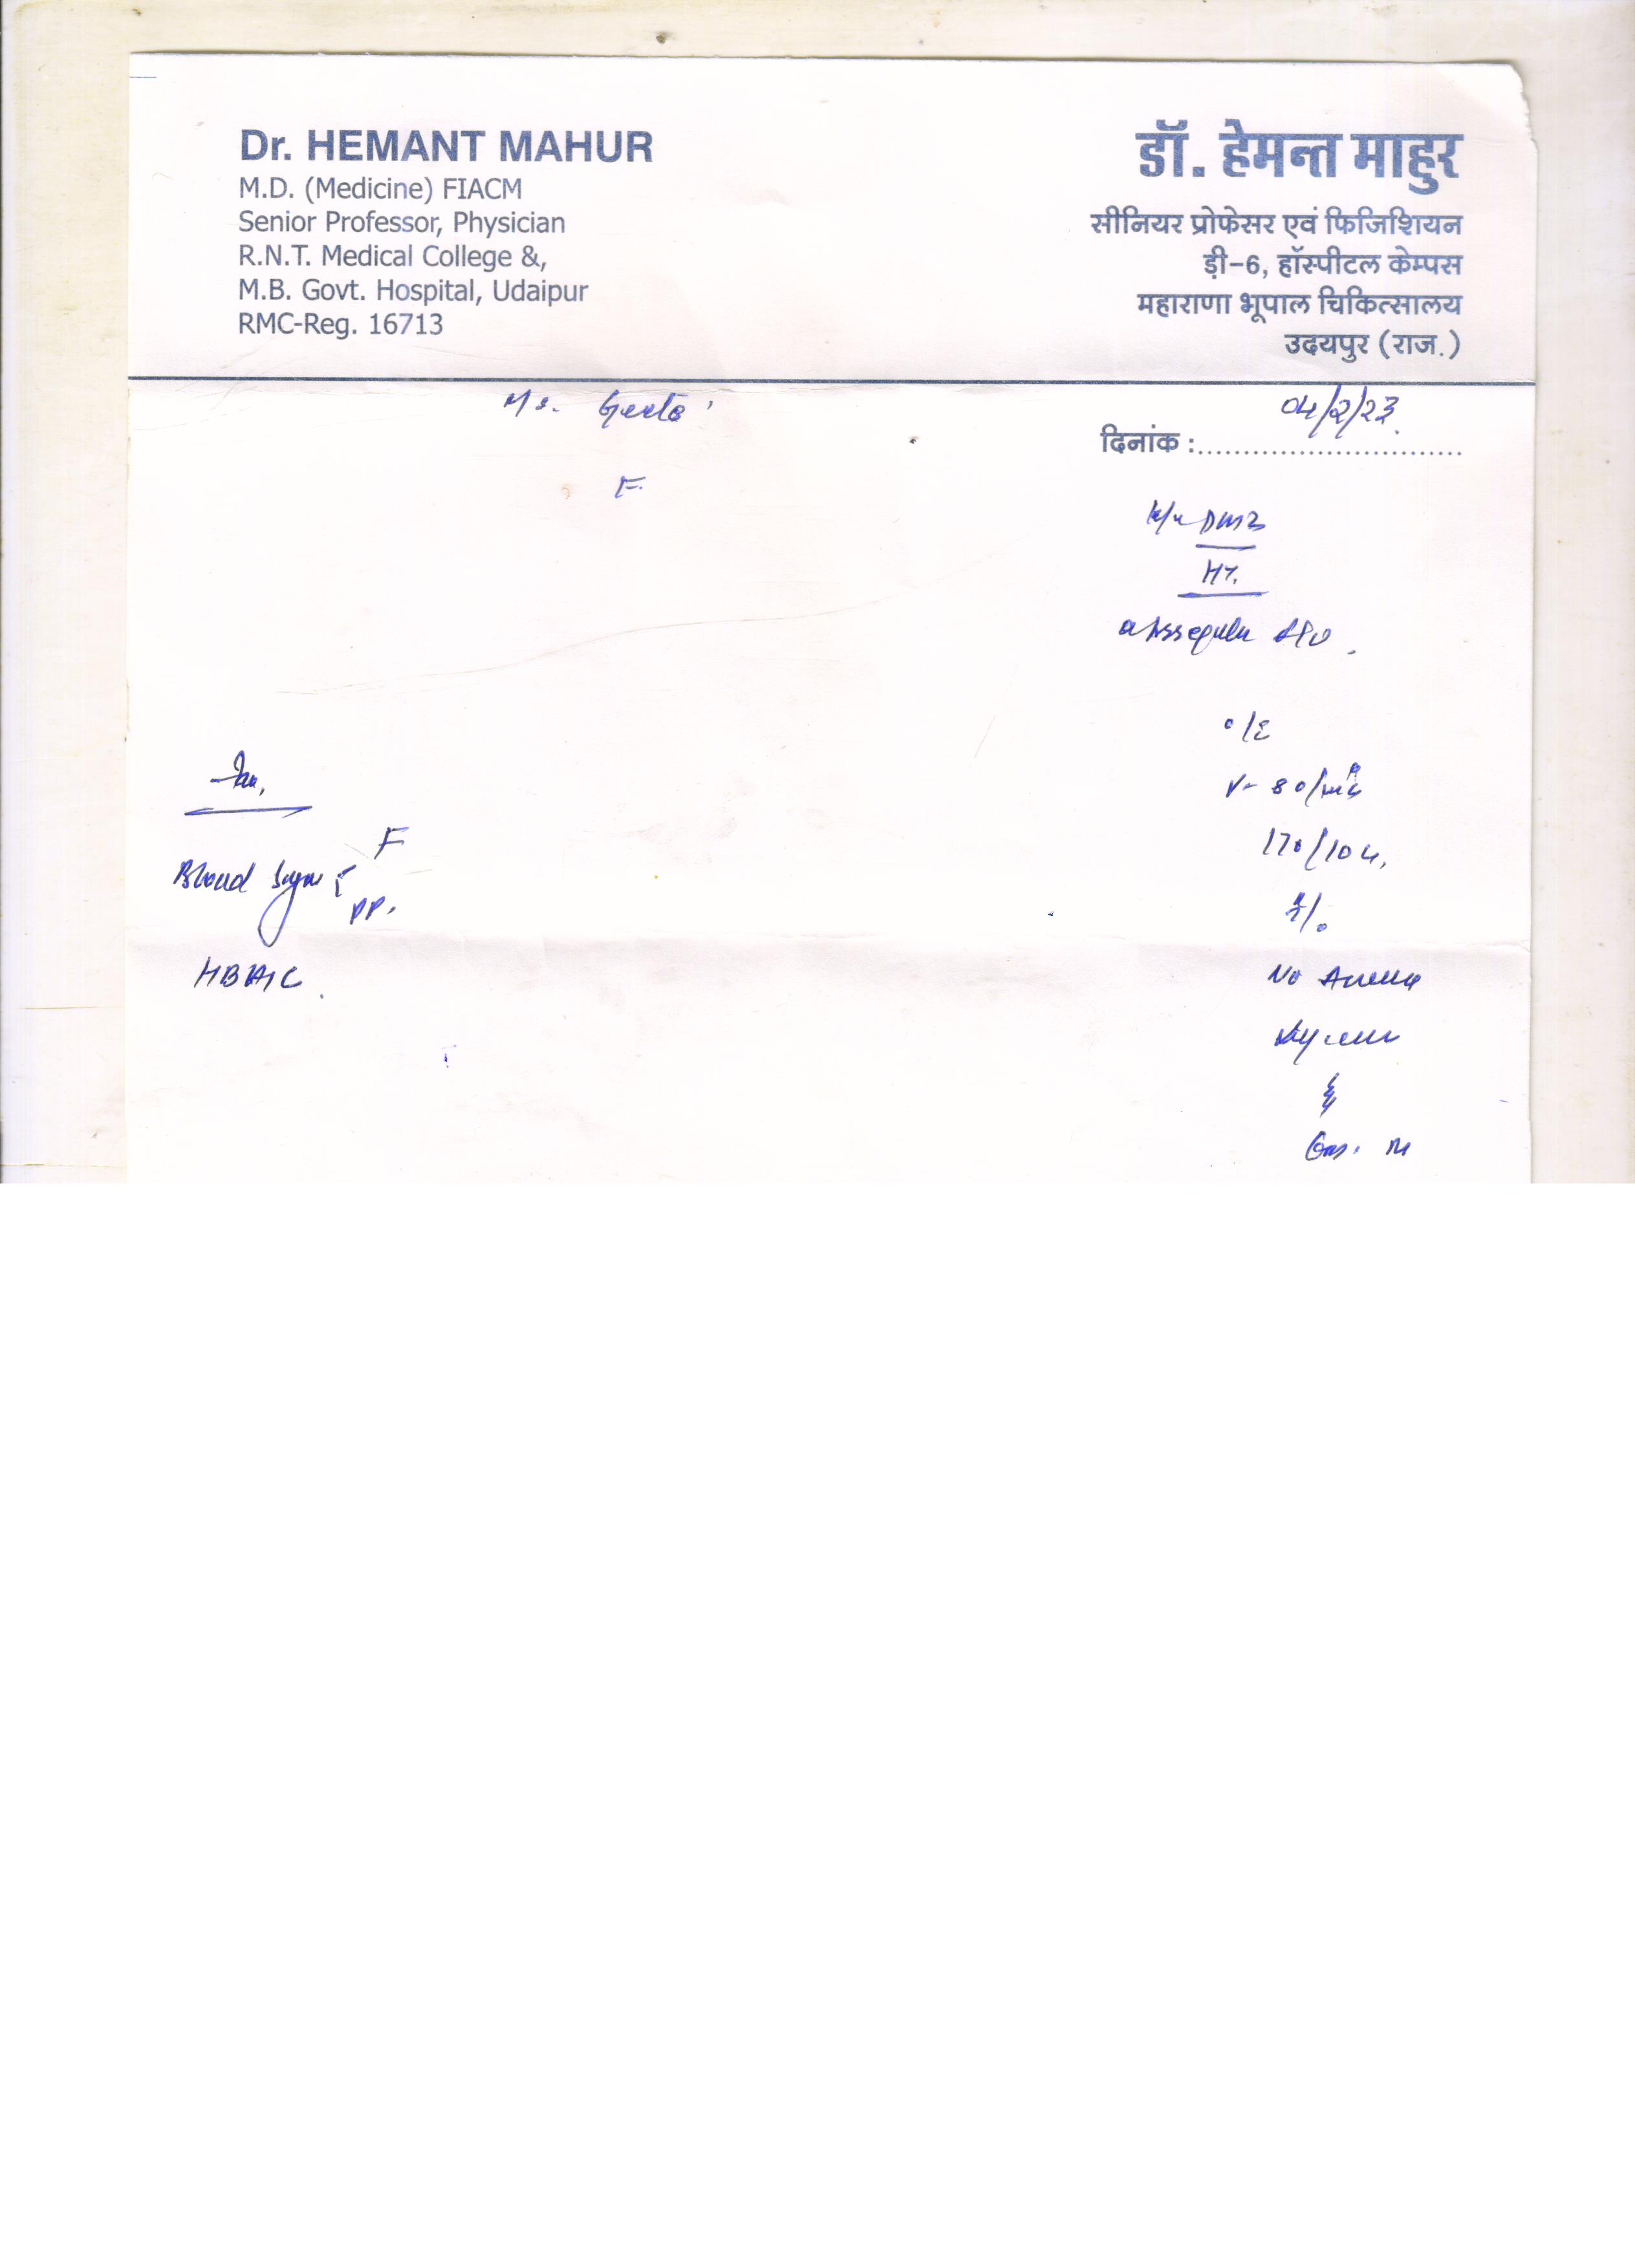 Dr. HEMANT MAHUR
M.D. (Medicine) FIACM
Senior Professor, Physician
R.N.T. Medical College &,
M.B. Govt. Hospital, Udaipur
RMC-Reg. 16713
डॉ. हेमन्त माहुर
सीनियर प्रोफेसर एवं फिजिशियन
ड़ी-6, हॉस्पीटल केम्पस
महाराणा भूपाल चिकित्सालय
उदयपुर (राज.)
Geeta
04/2/23
दिनांक :.............................
F.
HT.
O/E
80/min
170/104
F
Blood Sugar {
PP.
HBA1C
No